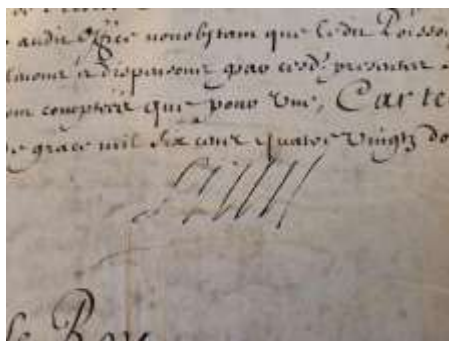 audit office nonobstant que ledit Poisso
dispensons par cesd. presentes
que pour une, Car te
de grace mil six cens quatre vingtz do
Louis
le Roy